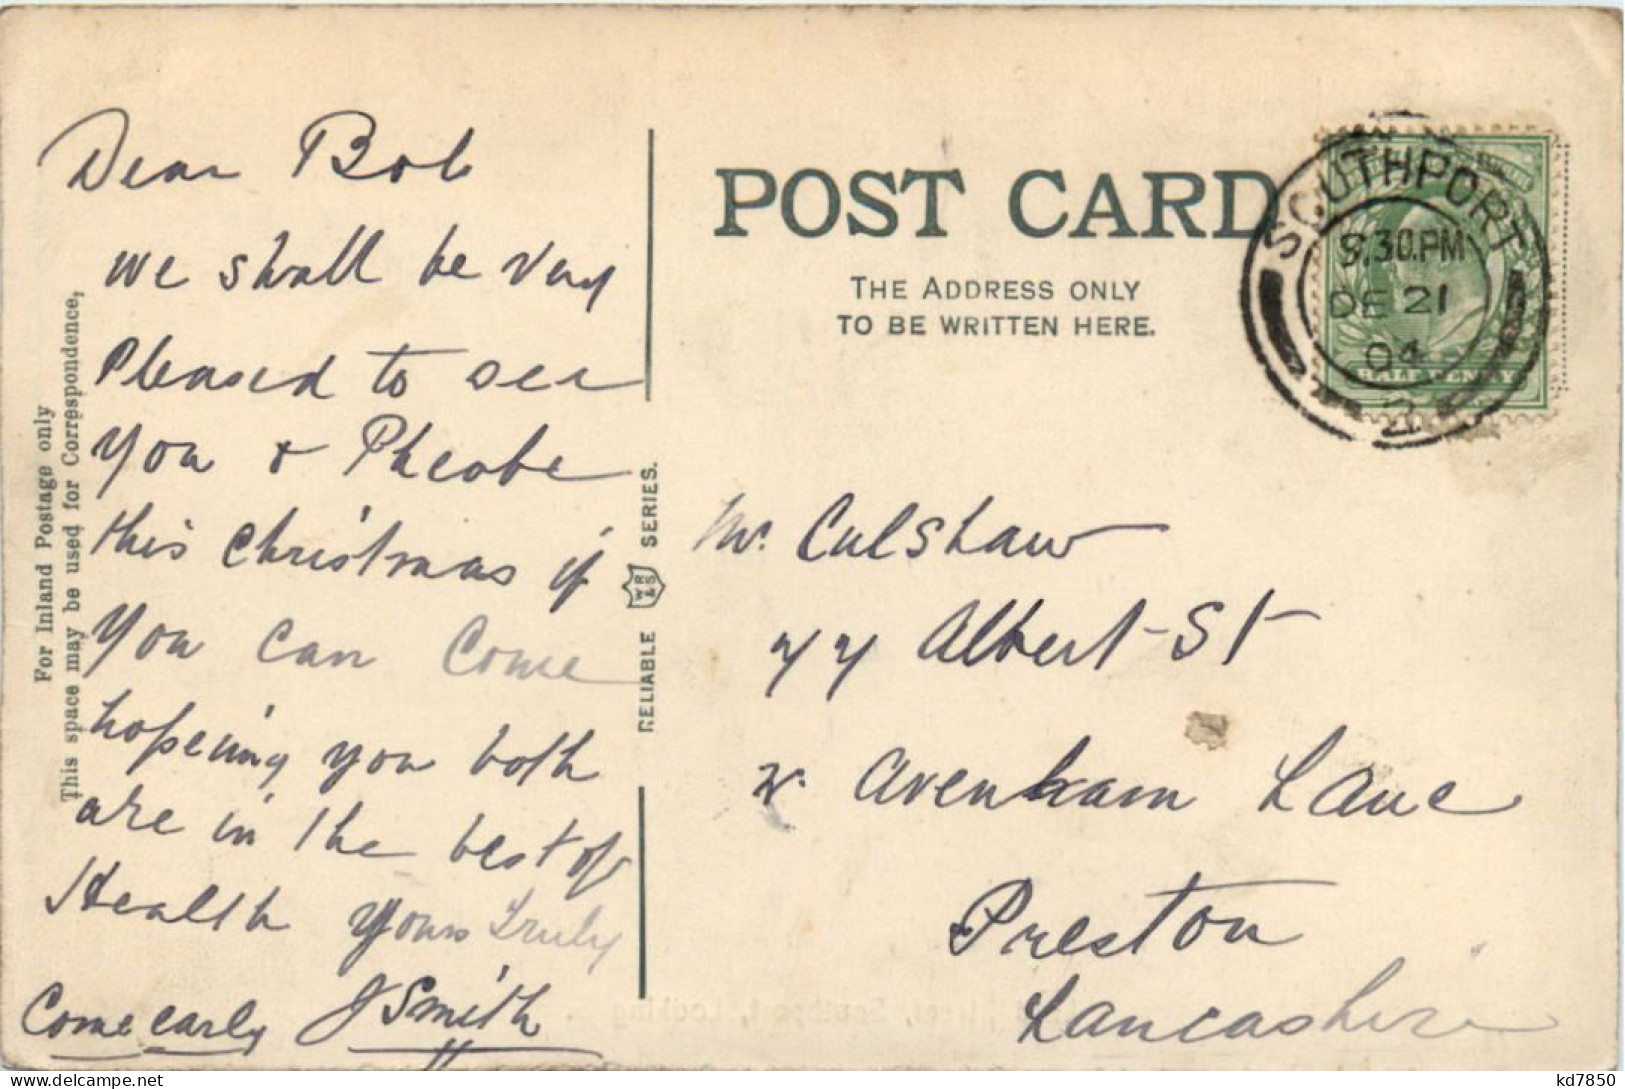 For Inland Postage only
This space may be used for Correspondence,
Dear Bob
we shall be Very
Pleased to see
you & Pheobe
this christmas if
you can come
hopeing you both
are in the best of
Health Yours Truly
Come early J Smith
RELIABLE SERIES.
POST CARD
THE ADDRESS ONLY
TO BE WRITTEN HERE.
SOUTHPORT
8.30.PM
DE 21
04
2
HALF PENNY
Mr. Culshaw
77 Albert St
Avenham Lane
Preston
Lancashire
kd7850